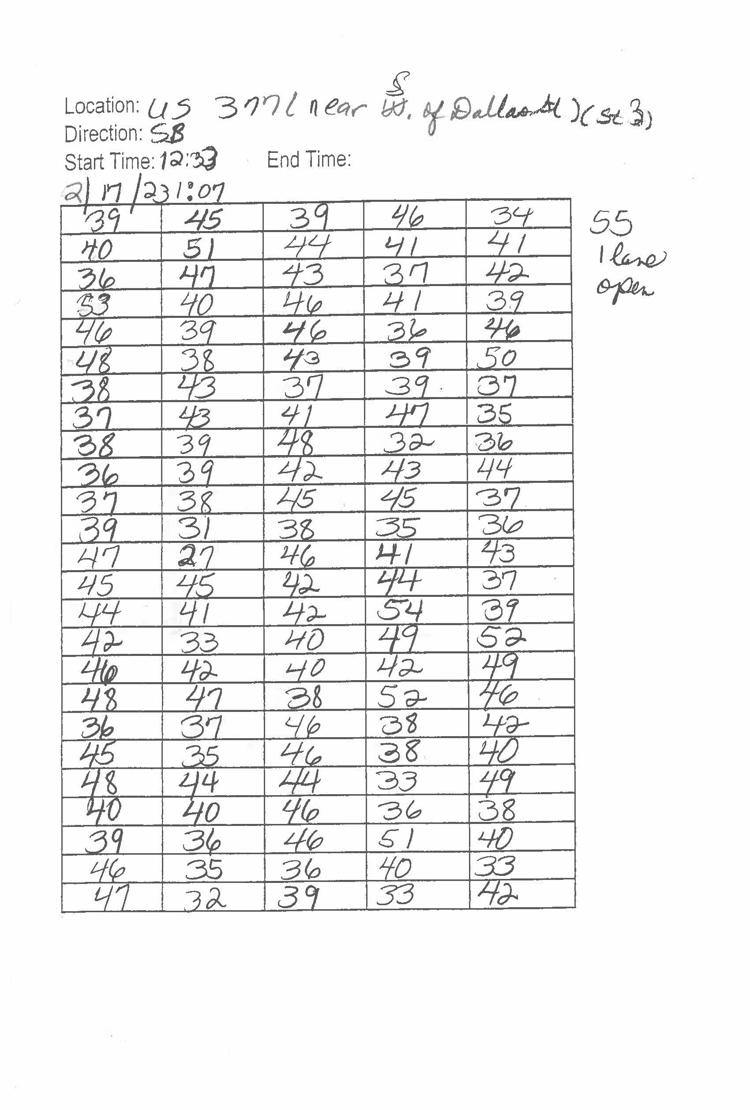 S
Location: US 377 ( near St. of Dallas St ) ( St 3 )
Direction: SB
Start Time: 12:33 End Time:
2/17/23 1:07
39 45 39 46 34 55
40 51 44 41 41 1 lane
36 47 43 37 42 open
53 40 46 41 39
46 39 46 36 46
48 38 43 39 50
38 43 37 39 37
37 43 41 47 35
38 39 48 32 36
36 39 42 43 44
37 38 45 45 37
39 31 38 35 36
47 27 46 41 43
45 45 42 44 37
44 41 42 54 39
42 33 40 49 52
46 42 40 42 49
48 47 38 52 46
36 37 46 38 42
45 35 46 38 40
48 44 44 33 49
40 40 46 36 38
39 36 46 51 40
46 35 36 40 33
47 32 39 33 42